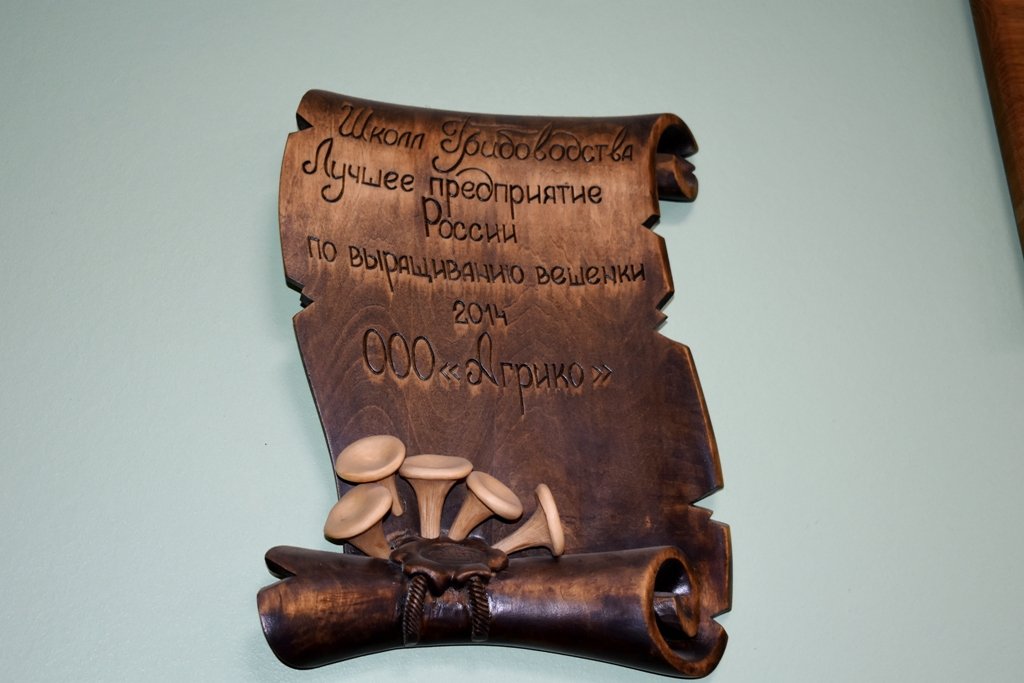 Школа Грибоводства
Лучшее предприятие
России
по выращиванию вешенки
2014
ООО «Агрико»